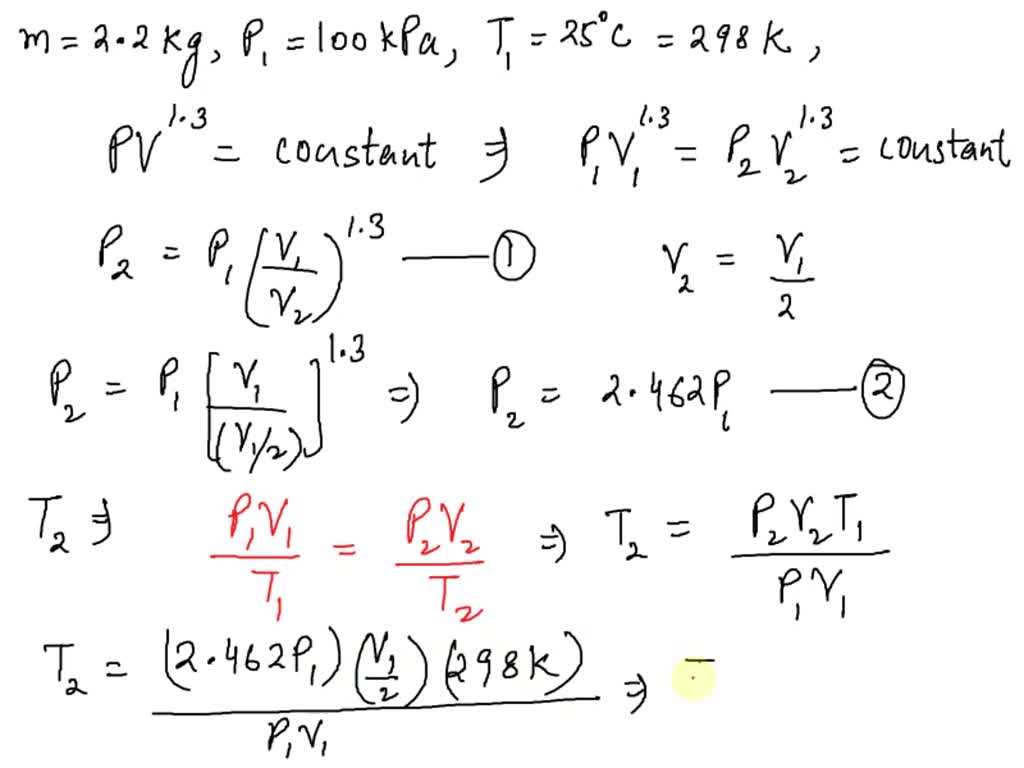 m = 2.2 kg, P₁ = 100 kPa, T₁ = 25°C = 298 K,
PV^1.3 = constant ⇒ P₁V₁^1.3 = P₂V₂^1.3 = constant
P₂ = P₁ (V₁/V₂)^1.3 —— ① V₂ = V₁/2
P₂ = P₁ [V₁/(V₁/2)]^1.3 ⇒ P₂ = 2.462P₁ —— ②
T₂ ⇒ P₁V₁/T₁ = P₂V₂/T₂ ⇒ T₂ = P₂V₂T₁/P₁V₁
T₂ = (2.462P₁)(V₁/2)(298K)/P₁V₁ ⇒